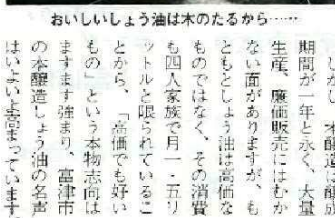 おいしいしょう油は木のたるから……
しかし、本醸造は醸成
期間が一年と永く、大量
生産、廉価販売にはむか
ない面がありますが、も
ともとしょう油は高価な
ものではなく、その消費
も四人家族で月一・五リ
ットルと限られているこ
とから、「高価でも好い
もの」という本物志向は
ますます強まり、富津市
の本醸造しょう油の名声
はいよいよ高まっています